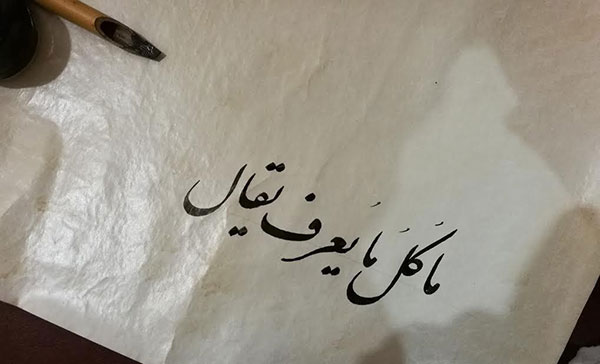 ما كل ما يعرف يقال